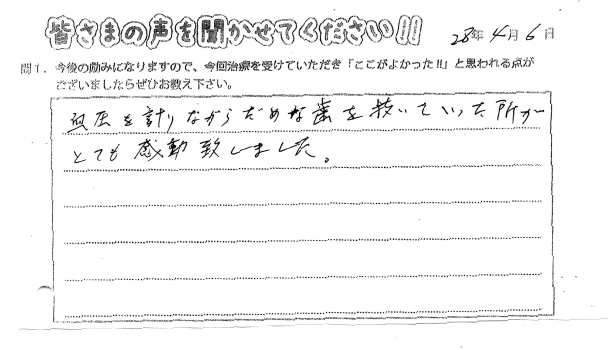 皆さまの声を聞かせてください!!
28年4月6日
問1. 今後の励みになりますので、今回治療を受けていただき「ここがよかった!!」と思われる点が
ございましたらぜひお教え下さい。
血圧を計りながらだめな歯を抜いていった所が
とても感動致しました。